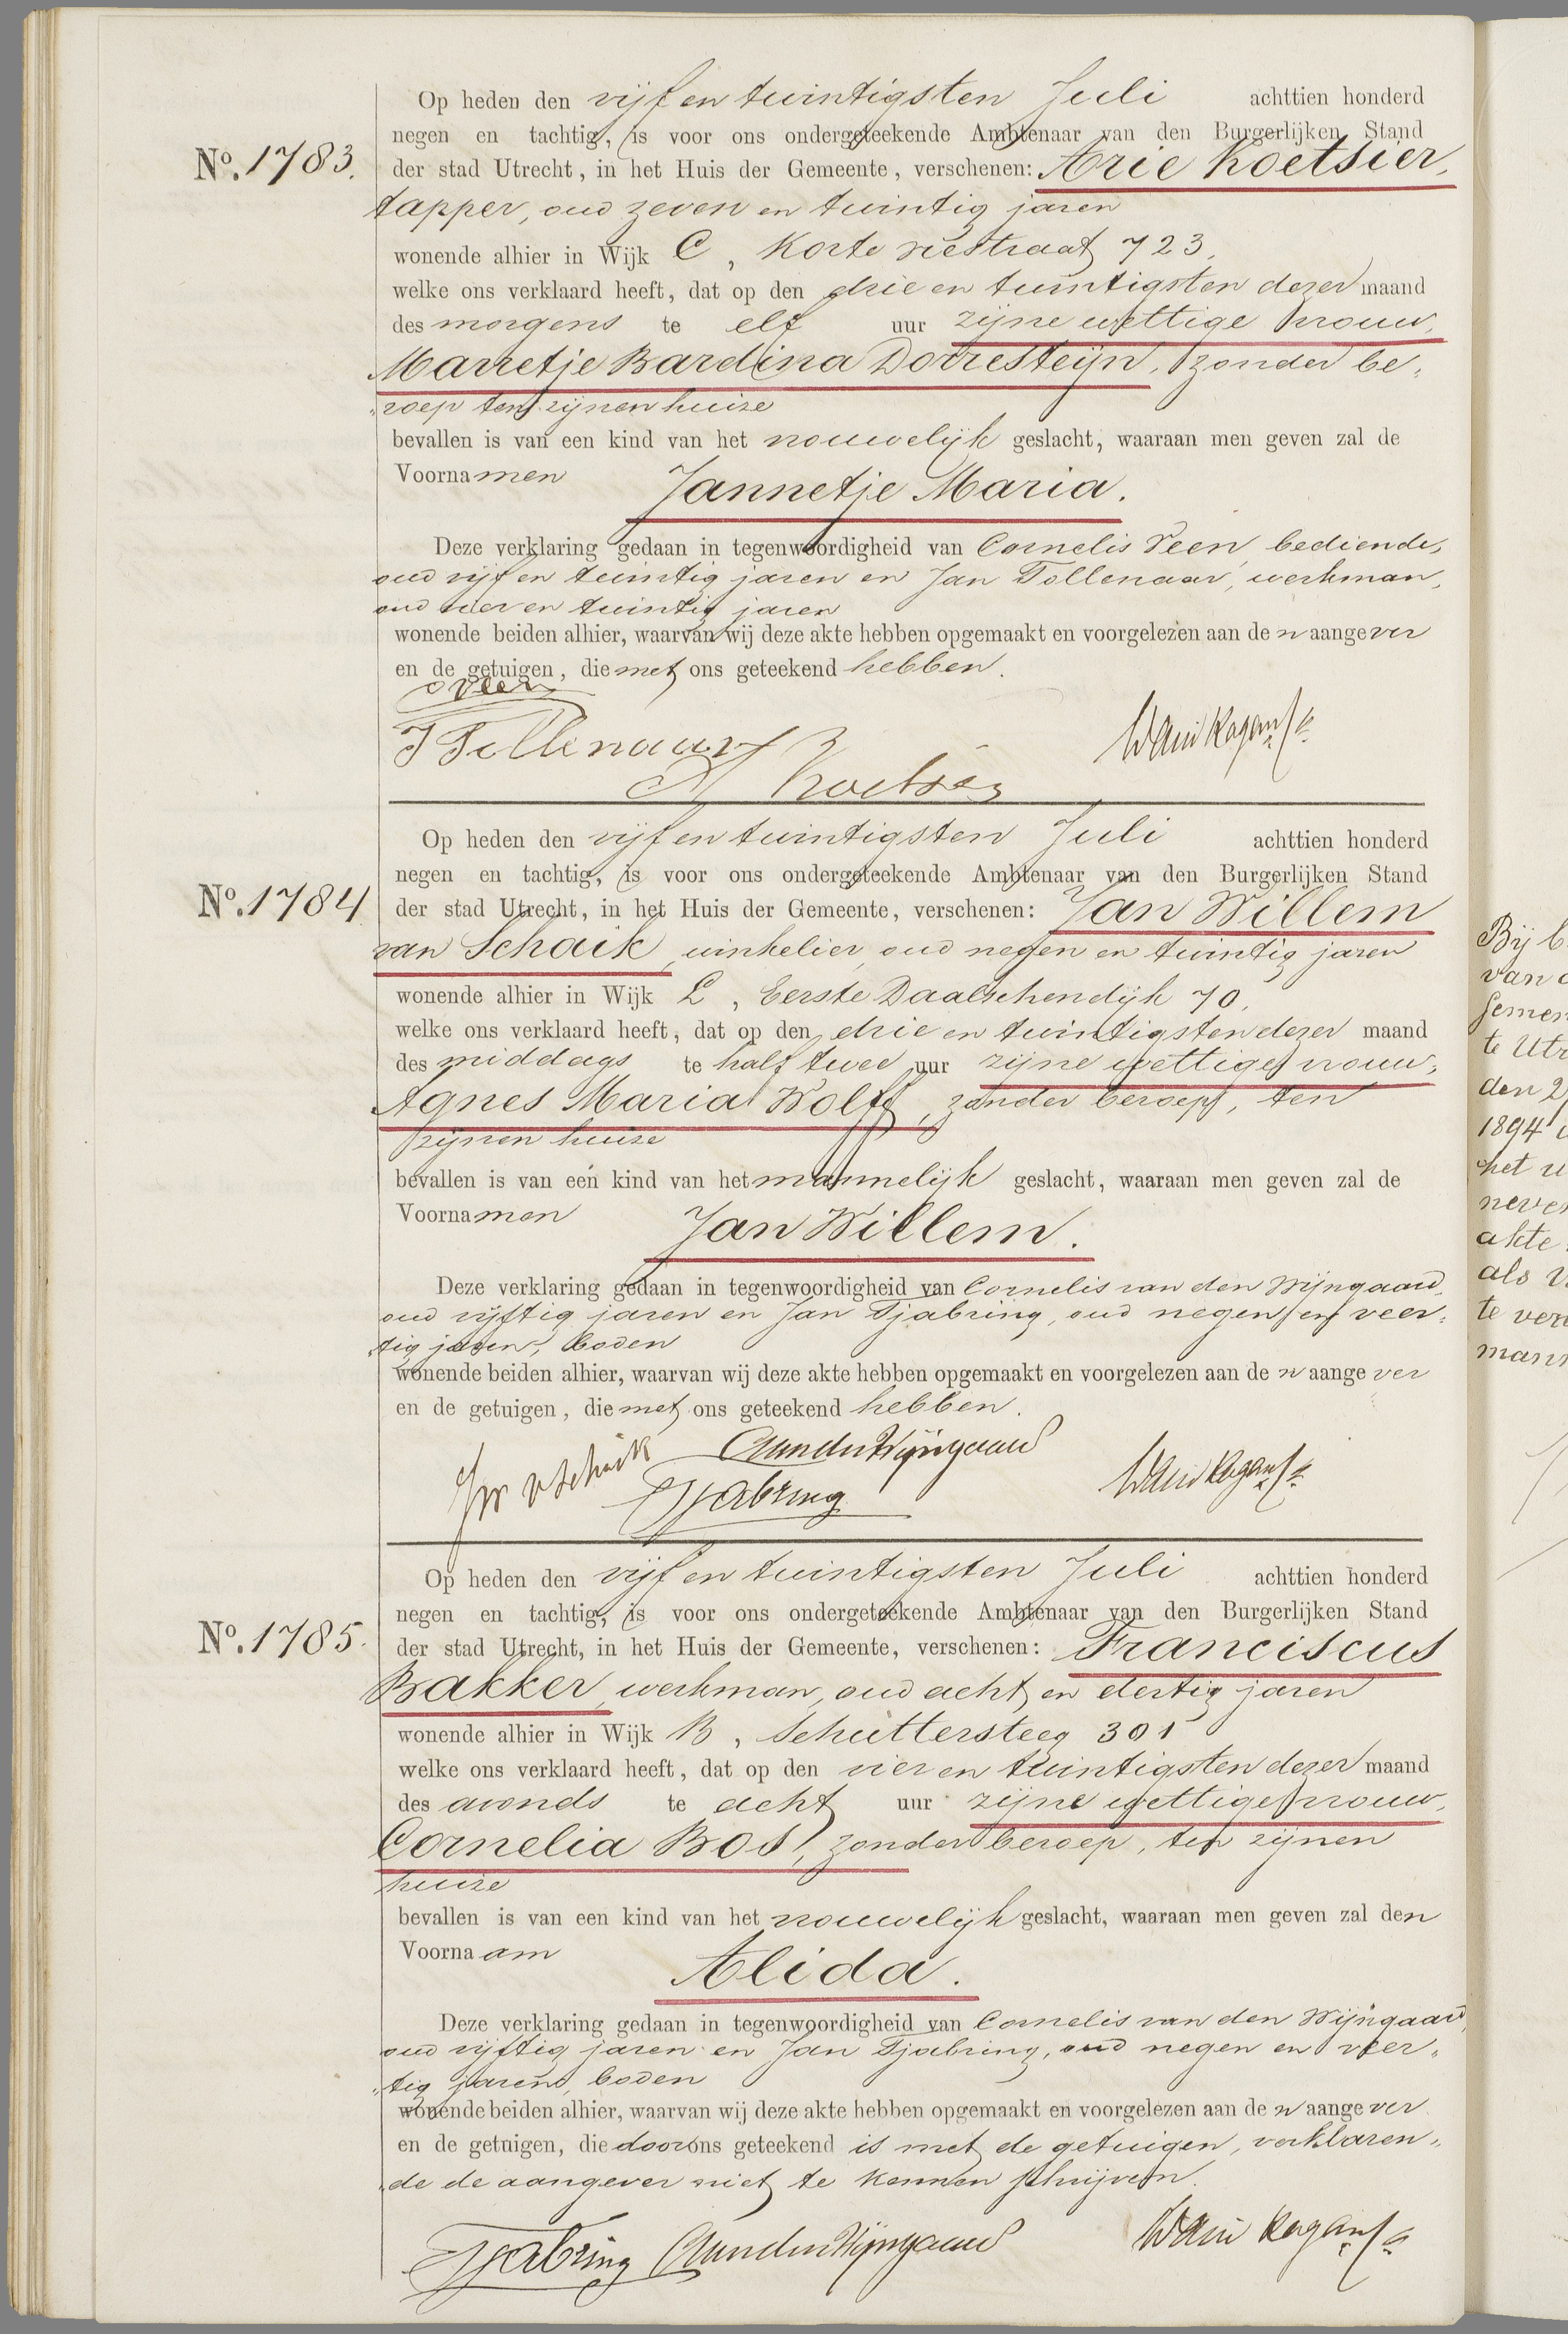 Op heden den vijf en twintigsten Juli achttien honderd
negen en tachtig, is voor ons ondergeteekende Ambtenaar van den Burgerlijken Stand
No. 1783. der stad Utrecht, in het Huis der Gemeente, verschenen: Arie Koetsier,
tapper, oud zeven en twintig jaren
wonende alhier in Wijk C, Korte Viestraat 723,
welke ons verklaard heeft, dat op den drie en twintigsten dezer maand
des morgens te elf uur zijne wettige vrouw,
Marretje Bardina Dorresteijn, zonder be„
„roep ten zijnen huize
bevallen is van een kind van het vrouwelijk geslacht, waaraan men geven zal de
Voornamen Jannetje Maria.
Deze verklaring gedaan in tegenwoordigheid van Cornelis Veen, bediende,
oud vijf en twintig jaren en Jan Tollenaar, werkman,
oud vier en twintig jaren
wonende beiden alhier, waarvan wij deze akte hebben opgemaakt en voorgelezen aan den aangever
en de getuigen, die met ons geteekend hebben.
C Veen
J Tollenaar
A Koetsier
Op heden den vijf en twintigsten Juli achttien honderd
negen en tachtig, is voor ons ondergeteekende Ambtenaar van den Burgerlijken Stand
No. 1784 der stad Utrecht, in het Huis der Gemeente, verschenen: Jan Willem
van Schaik, winkelier, oud negen en twintig jaren
wonende alhier in Wijk L, Eerste Daalschendijk 70,
welke ons verklaard heeft, dat op den drie en twintigsten dezer maand
des middags te half twee uur zijne wettige vrouw,
Agnes Maria Wolff, zonder beroep, ten
zijnen huize
bevallen is van een kind van het mannelijk geslacht, waaraan men geven zal de
Voornamen Jan Willem.
Deze verklaring gedaan in tegenwoordigheid van Cornelis van den Wijngaard,
oud vijftig jaren en Jan Tjabring, oud negen en veer„
„tig jaren, boden
wonende beiden alhier, waarvan wij deze akte hebben opgemaakt en voorgelezen aan den aangever
en de getuigen, die met ons geteekend hebben.
JW v Schaik CvandenWijngaard
Tjabring
Op heden den vijf en twintigsten Juli achttien honderd
negen en tachtig, is voor ons ondergeteekende Ambtenaar van den Burgerlijken Stand
No. 1785. der stad Utrecht, in het Huis der Gemeente, verschenen: Franciscus
Bakker, werkman, oud acht en dertig jaren
wonende alhier in Wijk B, Schuttersteeg 301
welke ons verklaard heeft, dat op den vier en twintigsten dezer maand
des avonds te acht uur zijne wettige vrouw,
Cornelia Bos, zonder beroep, ten zijnen
huize
bevallen is van een kind van het vrouwelijk geslacht, waaraan men geven zal den
Voornaam Alida.
Deze verklaring gedaan in tegenwoordigheid van Cornelis van den Wijngaard,
oud vijftig jaren en Jan Tjabring, oud negen en veer„
„tig jaren, boden
wonende beiden alhier, waarvan wij deze akte hebben opgemaakt en voorgelezen aan den aangever
en de getuigen, die door ons geteekend is met de getuigen, verklaren„
„de de aangever niet te kennen schrijven.
Tjabring CvandenWijngaard
Bij b
van d
Gemen
te Utr
den 2
1894
het u
neven
akte
als v
te ver
mann